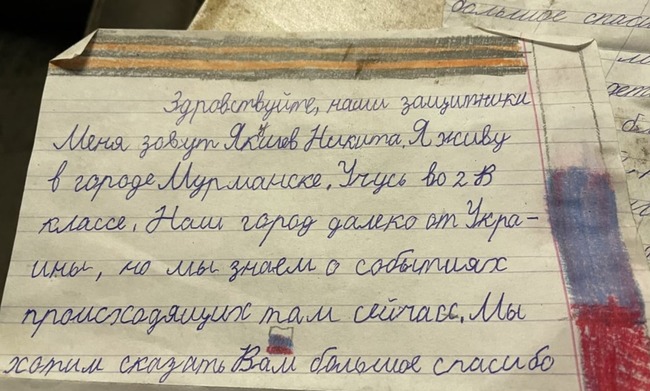 большое спаси
Здравствуйте, наши защитники
Меня зовут Якушев Никита. Я живу
в городе Мурманске. Учусь во 2 В
классе. Наш город далеко от Укра-
ины, но мы знаем о событиях
происходящих там сейчасс. Мы
хотим сказать Вам большое спасибо